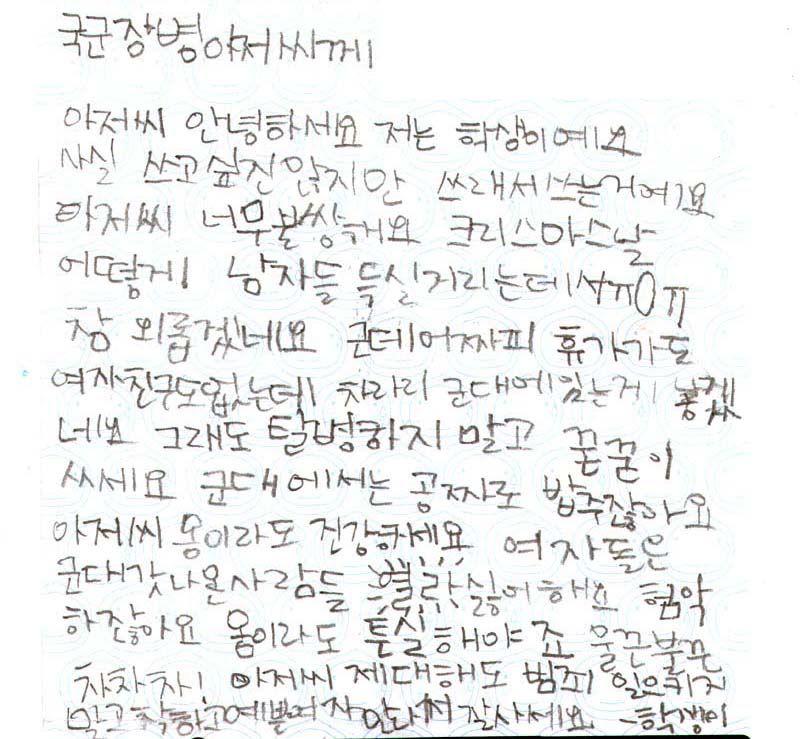 국군장병아저씨께
아저씨 안녕하세요 저는 학생이예요
사실 쓰고싶진않지만 쓰래서쓰는거예요
아저씨 너무불쌍해요 크리스마스날
어떻게 남자들 득실거리는데서ㅠ0ㅠ
참 외롭겠네요 근데어짜피 휴가가도
여자친구도없는데 차라리 군대에있는게 낳겠
네요 그래도 탈병하지 말고 꾿꾿이
싸세요 군대에서는 공짜로 밥주잖아요
아저씨 몸이라도 건강하세요 여자들은
군대갓나온사람들 별라싫어해요 험악
하잖아요 몸이라도 튼실해야죠 울끈불끈
차차차! 아저씨 제대해도 범죄 일으키지
말고착하고예쁜여자만나서 잘사세요 -학생이